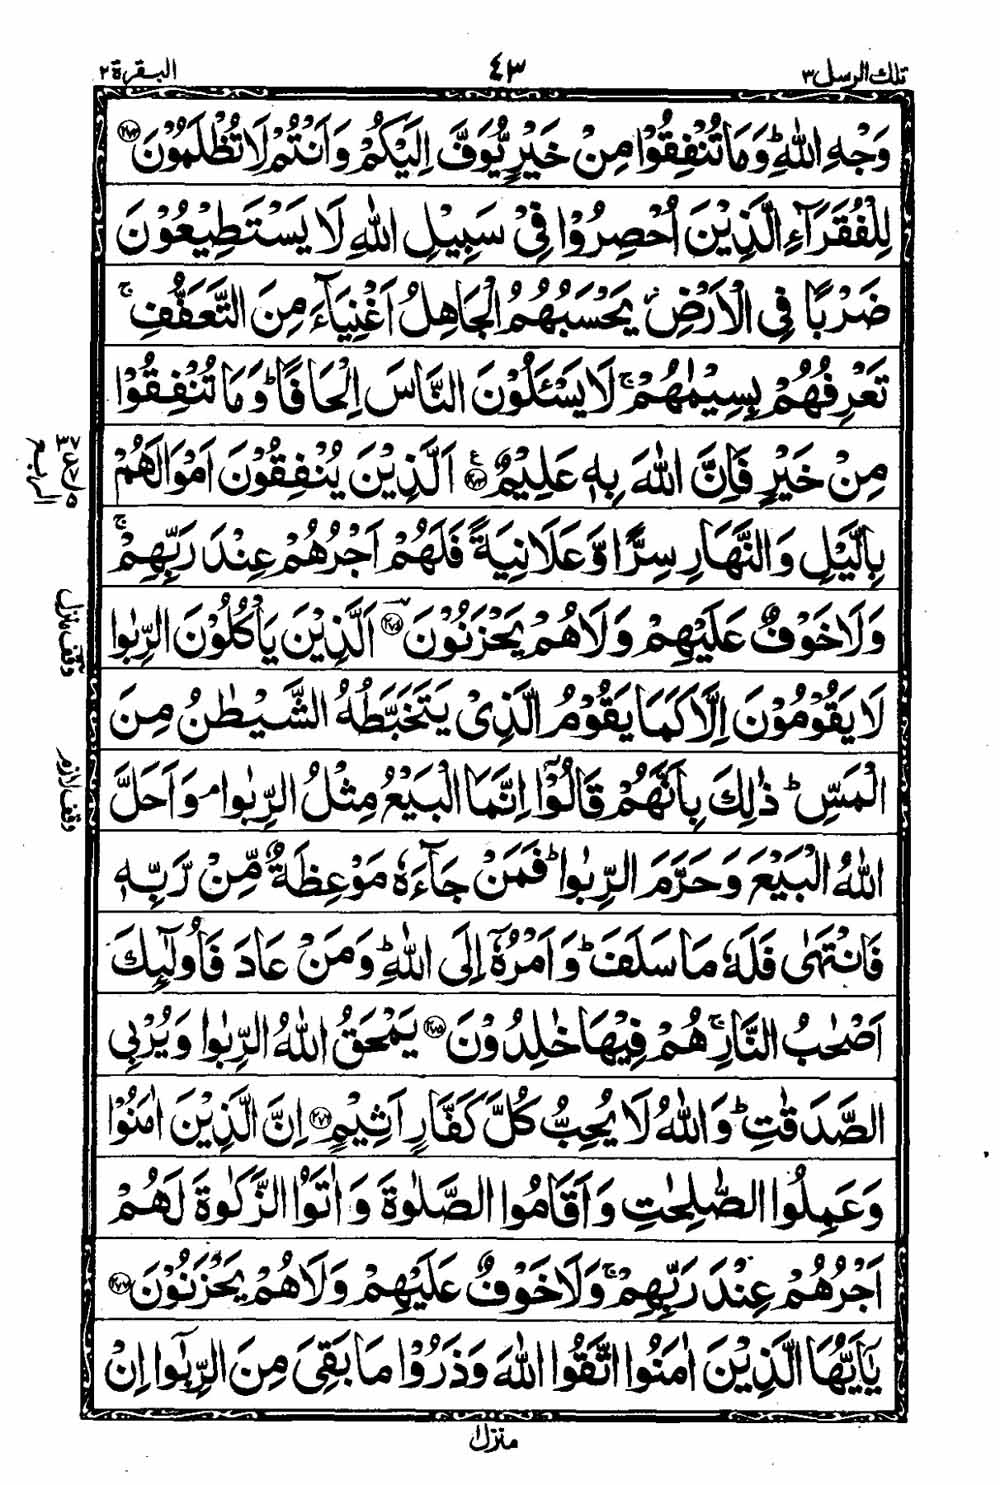 تلك الرسل ٣ ٤٣ البقرة ٢
وَجْهِ اللّٰهِ ؕ وَمَا تُنْفِقُوْا مِنْ خَيْرٍ يُّوَفَّ اِلَيْكُمْ وَاَنْتُمْ لَا تُظْلَمُوْنَ ﴿۲۷۲﴾
لِلْفُقَرَآءِ الَّذِيْنَ اُحْصِرُوْا فِيْ سَبِيْلِ اللّٰهِ لَا يَسْتَطِيْعُوْنَ
ضَرْبًا فِي الْاَرْضِ ؗ يَحْسَبُهُمُ الْجَاهِلُ اَغْنِيَآءَ مِنَ التَّعَفُّفِ ۚ
تَعْرِفُهُمْ بِسِيْمٰهُمْ ۚ لَا يَسْـَٔلُوْنَ النَّاسَ اِلْحَافًا ؕ وَمَا تُنْفِقُوْا
مِنْ خَيْرٍ فَاِنَّ اللّٰهَ بِهٖ عَلِيْمٌ ﴿۲۷۳﴾ ع اَلَّذِيْنَ يُنْفِقُوْنَ اَمْوَالَهُمْ
بِالَّيْلِ وَالنَّهَارِ سِرًّا وَّعَلَانِيَةً فَلَهُمْ اَجْرُهُمْ عِنْدَ رَبِّهِمْ ۚ
وَلَا خَوْفٌ عَلَيْهِمْ وَلَا هُمْ يَحْزَنُوْنَ ﴿۲۷۴﴾ اَلَّذِيْنَ يَاْكُلُوْنَ الرِّبٰوا
لَا يَقُوْمُوْنَ اِلَّا كَمَا يَقُوْمُ الَّذِيْ يَتَخَبَّطُهُ الشَّيْطٰنُ مِنَ
الْمَسِّ ؕ ذٰلِكَ بِاَنَّهُمْ قَالُوْۤا اِنَّمَا الْبَيْعُ مِثْلُ الرِّبٰوا ۘ وَاَحَلَّ
اللّٰهُ الْبَيْعَ وَحَرَّمَ الرِّبٰوا ؕ فَمَنْ جَآءَهٗ مَوْعِظَةٌ مِّنْ رَّبِّهٖ
فَانْتَهٰى فَلَهٗ مَا سَلَفَ ؕ وَاَمْرُهٗۤ اِلَى اللّٰهِ ؕ وَمَنْ عَادَ فَاُولٰٓئِكَ
اَصْحٰبُ النَّارِ ۚ هُمْ فِيْهَا خٰلِدُوْنَ ﴿۲۷۵﴾ يَمْحَقُ اللّٰهُ الرِّبٰوا وَيُرْبِي
الصَّدَقٰتِ ؕ وَاللّٰهُ لَا يُحِبُّ كُلَّ كَفَّارٍ اَثِيْمٍ ﴿۲۷۶﴾ اِنَّ الَّذِيْنَ اٰمَنُوْا
وَعَمِلُوا الصّٰلِحٰتِ وَاَقَامُوا الصَّلٰوةَ وَاٰتَوُا الزَّكٰوةَ لَهُمْ
اَجْرُهُمْ عِنْدَ رَبِّهِمْ ۚ وَلَا خَوْفٌ عَلَيْهِمْ وَلَا هُمْ يَحْزَنُوْنَ ﴿۲۷۷﴾
يٰۤاَيُّهَا الَّذِيْنَ اٰمَنُوا اتَّقُوا اللّٰهَ وَذَرُوْا مَا بَقِيَ مِنَ الرِّبٰۤوا اِنْ
منزل ١
وقف منزل
وقف لازم